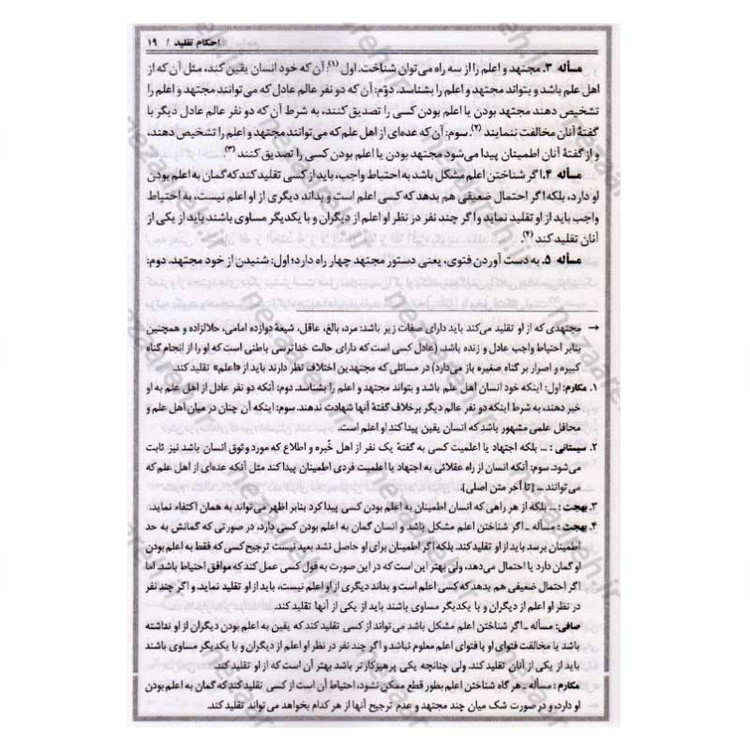 احکام تقلید / ۱۹
مسأله ۳. مجتهد و اعلم را از سه راه می‌توان شناخت. اول (۱): آن که خود انسان یقین کند، مثل آن که از
اهل علم باشد و بتواند مجتهد و اعلم را بشناسد. دوّم: آن که دو نفر عالم عادل که می‌توانند مجتهد و اعلم را
تشخیص دهند مجتهد بودن یا اعلم بودن کسی را تصدیق کنند، به شرط آن که دو نفر عالم عادل دیگر با
گفتهٔ آنان مخالفت ننمایند (۲). سوم: آن که عده‌ای از اهل علم که می‌توانند مجتهد و اعلم را تشخیص دهند،
و از گفتهٔ آنان اطمینان پیدا می‌شود مجتهد بودن یا اعلم بودن کسی را تصدیق کنند (۳).
مسأله ۴. اگر شناختن اعلم مشکل باشد به احتیاط واجب، باید از کسی تقلید کند که گمان به اعلم بودن
او دارد، بلکه اگر احتمال ضعیفی هم بدهد که کسی اعلم است و بداند دیگری از او اعلم نیست، به احتیاط
واجب باید از او تقلید نماید و اگر چند نفر در نظر او اعلم از دیگران و با یکدیگر مساوی باشند باید از یکی از
آنان تقلید کند (۴).
مسأله ۵. به دست آوردن فتوی، یعنی دستور مجتهد چهار راه دارد؛ اول: شنیدن از خود مجتهد. دوم:
→ مجتهدی که از او تقلید می‌کند باید دارای صفات زیر باشد: مرد، بالغ، عاقل، شیعهٔ دوازده امامی، حلالزاده و همچنین
بنابر احتیاط واجب عادل و زنده باشد. (عادل کسی است که دارای حالت خداترسی باطنی است که او را از انجام گناه
کبیره و اصرار بر گناه صغیره باز می‌دارد) در مسائلی که مجتهدین اختلاف نظر دارند باید از «اعلم» تقلید کند.
۱. مکارم: اول: اینکه خود انسان اهل علم باشد و بتواند مجتهد و اعلم را بشناسد. دوم: آنکه دو نفر عادل از اهل علم به او
خبر دهند، به شرط اینکه دو نفر عالم دیگر برخلاف گفتهٔ آنها شهادت ندهند. سوم: اینکه آن چنان در میان اهل علم و
محافل علمی مشهور باشد که انسان یقین پیدا کند او اعلم است.
۲. سیستانی: ... بلکه اجتهاد یا اعلمیت کسی به گفتهٔ یک نفر از اهل خُبره و اطلاع که مورد وثوق انسان باشد نیز ثابت
می‌شود. سوم: آنکه انسان از راه عقلائی به اجتهاد یا اعلمیت فردی اطمینان پیدا کند مثل آنکه عده‌ای از اهل علم که
می‌توانند ... [تا آخر متن اصلی].
۳. بهجت: ... بلکه از هر راهی که انسان اطمینان به اعلم بودن کسی پیدا کرد بنابر اظهر می‌تواند به همان اکتفاء نماید.
۴. بهجت: مسأله ـ اگر شناختن اعلم مشکل باشد و انسان گمان به اعلم بودن کسی دارد، در صورتی که گمانش به حد
اطمینان برسد باید از او تقلید کند. بلکه اگر اطمینان برای او حاصل نشد بعید نیست ترجیح کسی که فقط به اعلم بودن
او گمان دارد یا احتمال می‌دهد، ولی بهتر این است که در این صورت به قول کسی عمل کند که موافق احتیاط باشد. اما
اگر احتمال ضعیفی هم بدهد که کسی اعلم است و بداند دیگری از او اعلم نیست، باید از او تقلید نماید و اگر چند نفر
در نظر او اعلم از دیگران و با یکدیگر مساوی باشند باید از یکی از آنها تقلید کند.
صافی: مسأله ـ اگر شناختن اعلم مشکل باشد می‌تواند از کسی تقلید کند که یقین به اعلم بودن دیگران از او نداشته
باشد یا مخالفت فتوای او با فتوای اعلم معلوم نباشد و اگر چند نفر در نظر او اعلم از دیگران و با یکدیگر مساوی باشند
باید از یکی از آنان تقلید کند. ولی چنانچه یکی پرهیزکارتر باشد بهتر آن است که از او تقلید کند.
مکارم: مسأله ـ هر گاه شناختن اعلم بطور قطع ممکن نشود، احتیاط آن است از کسی تقلید کند که گمان به اعلم بودن
او دارد، و در صورت شک میان چند مجتهد و عدم ترجیح آنها از هر کدام بخواهد می‌تواند تقلید کند.
nezaareh.ir